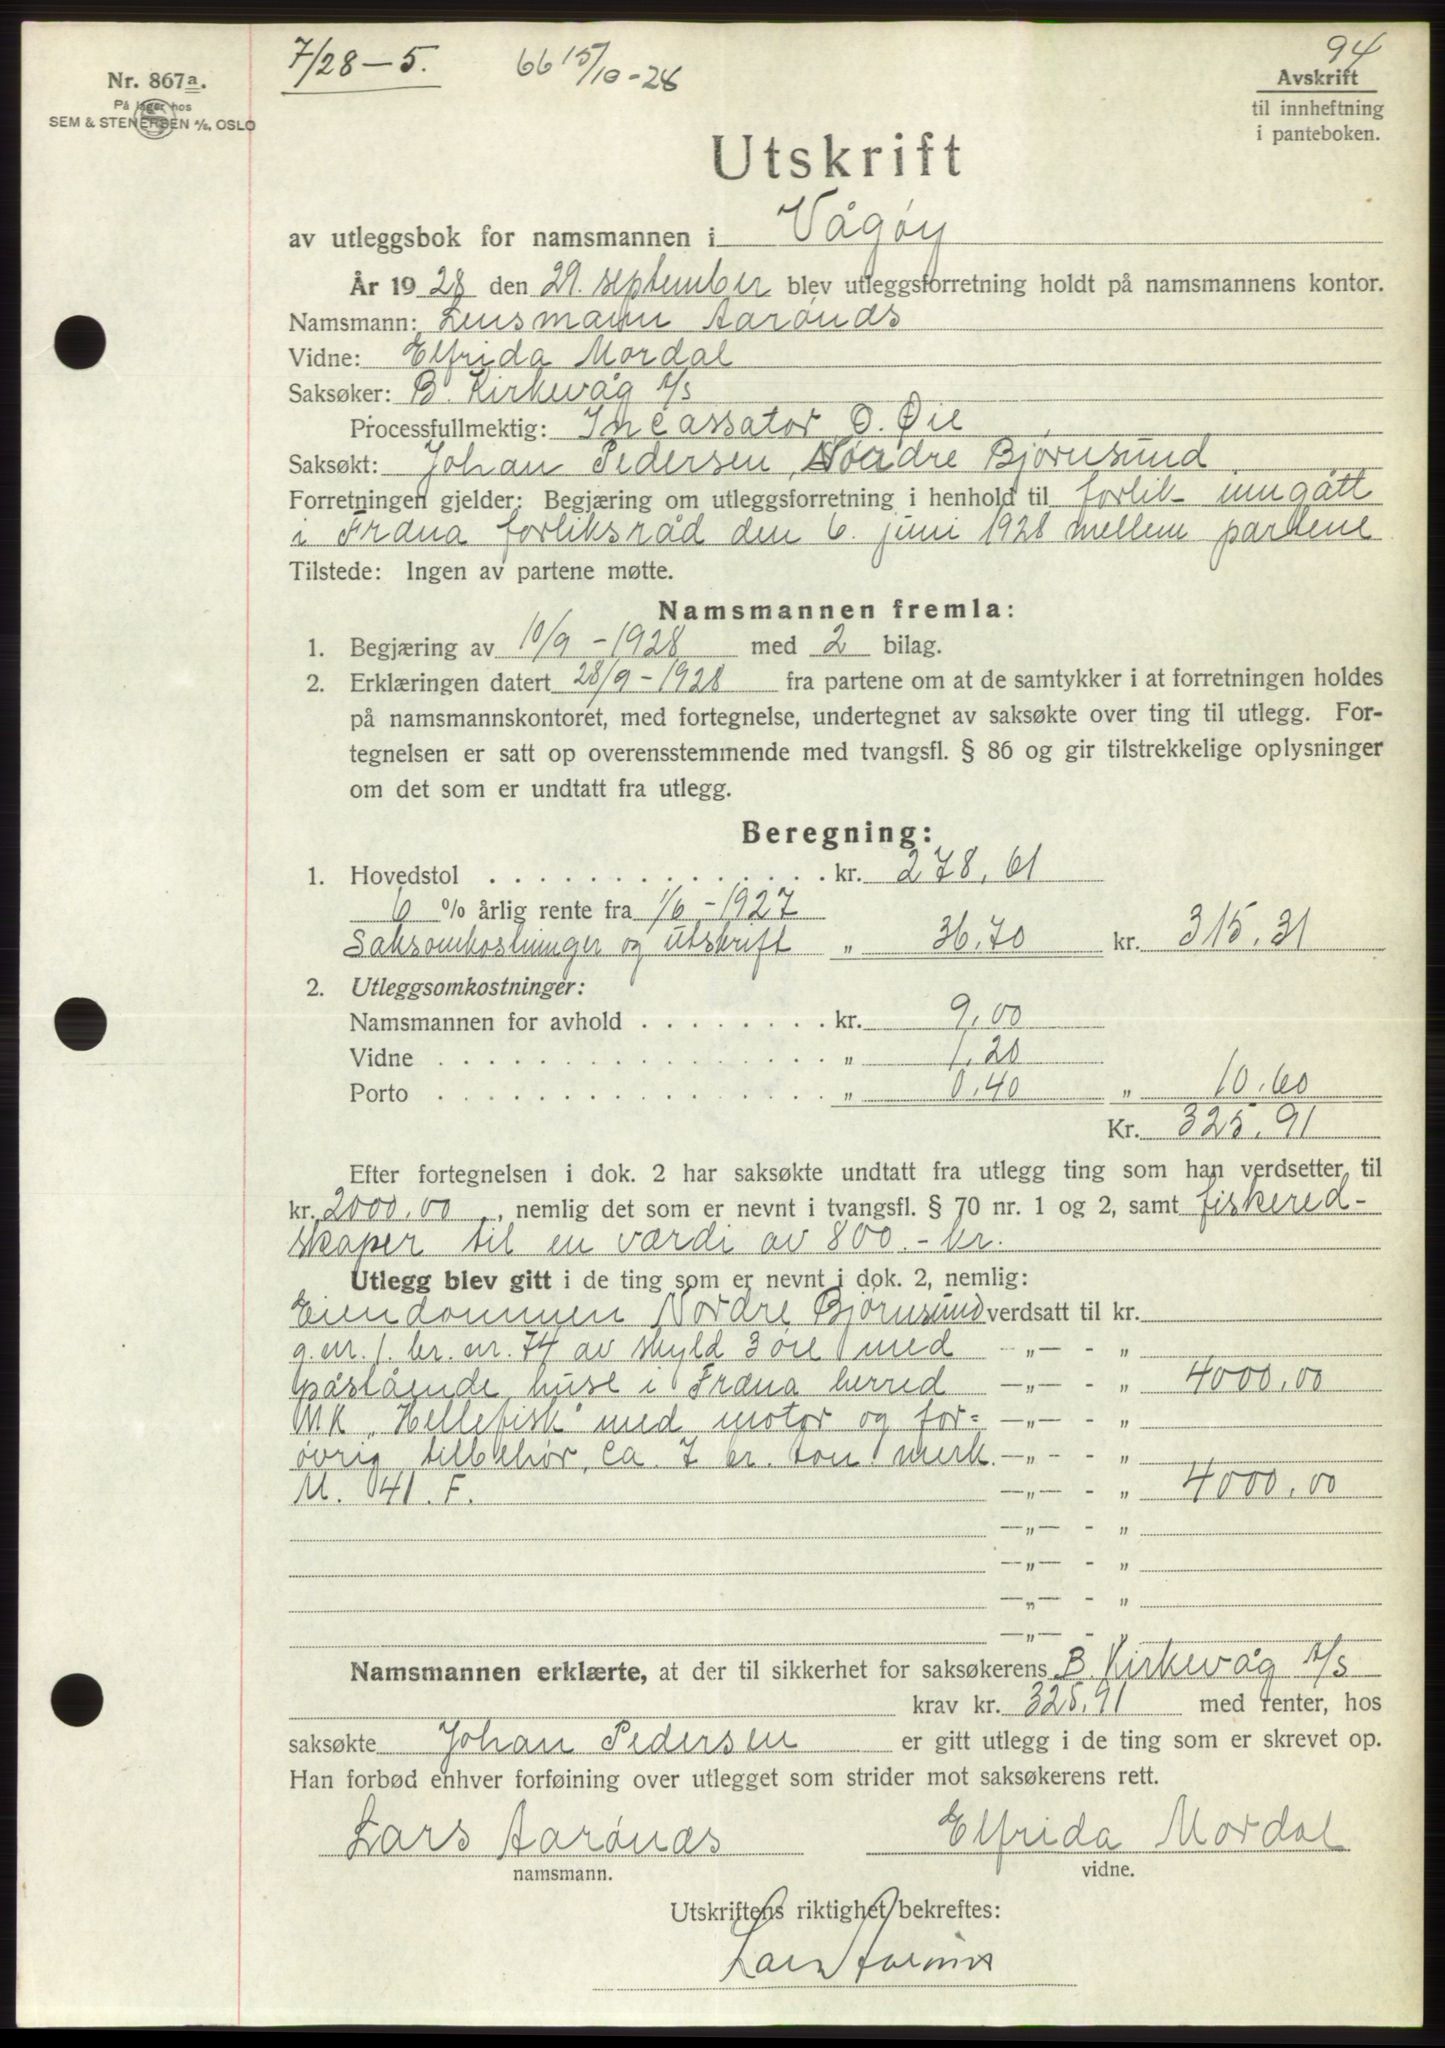 7/28 – 5.
66 15/10 - 28
94
Nr. 867a.
På lager hos
SEM & STENERSEN A/S, OSLO
Avskrift
til innheftning
i panteboken.
Utskrift
av utleggsbok for namsmannen i Vågøy
År 1928 den 29. september blev utleggsforretning holdt på namsmannens kontor.
Namsmann: Lensmann Aarönæs
Vidne: Elfrida Mordal
Saksøker: B. Kirkevåg A/S
Processfullmektig: Incassator O. Øie
Saksøkt: Johan Pedersen, Nordre Björnsund
Forretningen gjelder: Begjæring om utleggsforretning i henhold til forlik inngått
i Fræna forliksråd den 6. juni 1928 mellem partene
Tilstede: Ingen av partene møtte.
Namsmannen fremla:
1. Begjæring av 10/9 - 1928 med 2 bilag.
2. Erklæringen datert 28/9 - 1928 fra partene om at de samtykker i at forretningen holdes
på namsmannskontoret, med fortegnelse, undertegnet av saksøkte over ting til utlegg. For-
tegnelsen er satt op overensstemmende med tvangsfl. § 86 og gir tilstrekkelige oplysninger
om det som er undtatt fra utlegg.
Beregning:
1. Hovedstol . . . . . . . . . . . . . . kr. 278,61
6 % årlig rente fra 1/6 - 1927
Saksomkostninger og utskrift „ 36,70 kr. 315,31
2. Utleggsomkostninger:
Namsmannen for avhold . . . . . . . . kr. 9,00
Vidne . . . . . . . . . . . . . . . . „ 1,20
Porto . . . . . . . . . . . . . . . . „ 0,40 „ 10,60
Kr. 325,91
Efter fortegnelsen i dok. 2 har saksøkte undtatt fra utlegg ting som han verdsetter til
kr. 2000,00, nemlig det som er nevnt i tvangsfl. § 70 nr. 1 og 2, samt fiskered-
skaper til en værdi av 800.- kr.
Utlegg blev gitt i de ting som er nevnt i dok. 2, nemlig:
Eiendommen Nordre Björnsund verdsatt til kr.
g.nr. 1. br. nr. 74 av skyld 3 öre med —„— - „
påstående huse i Fræna herred —„— - „ 4000,00
M.K „Hellefisk" med motor og for= —„— - „
övrig tilbehör, ca. 7 br. ton merk. —„— - „
M. 41. F. —„— - „ 4000,00
—„— - „
—„— - „
—„— - „
—„— - „
Namsmannen erklærte, at der til sikkerhet for saksøkerens B. Kirkevåg A/S
krav kr. 325,91 med renter, hos
saksøkte Johan Pedersen er gitt utlegg i de ting som er skrevet op.
Han forbød enhver forføining over utlegget som strider mot saksøkerens rett.
Lars Aarönæs Elfrida Mordal
namsmann. vidne.
Utskriftens riktighet bekreftes:
Lars Aarönæs